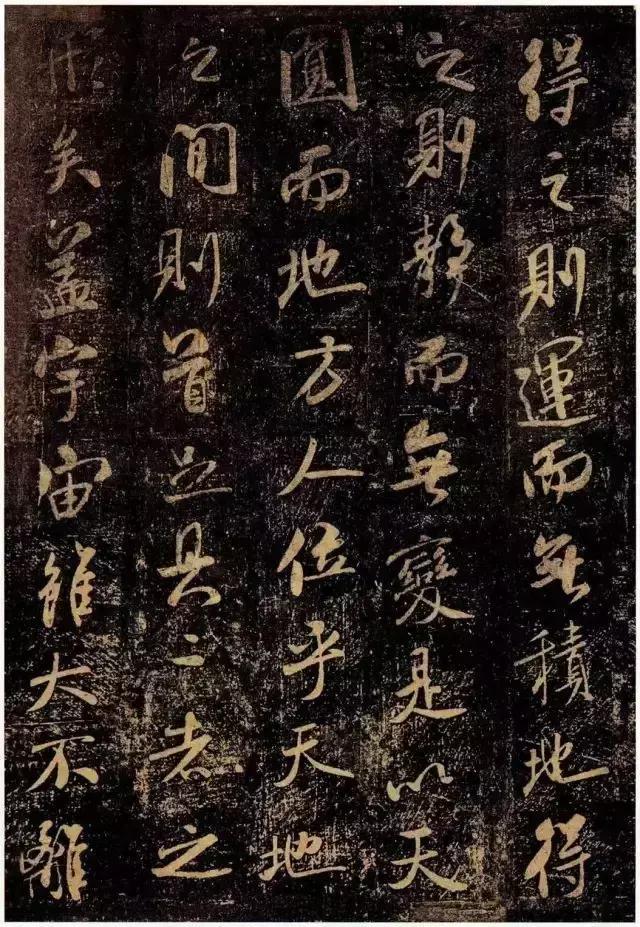 得之則運而無積地得
之則静而無變是以天
圓而地方人位乎天地
之間則首足具二者之
形矣盖宇宙雖大不離